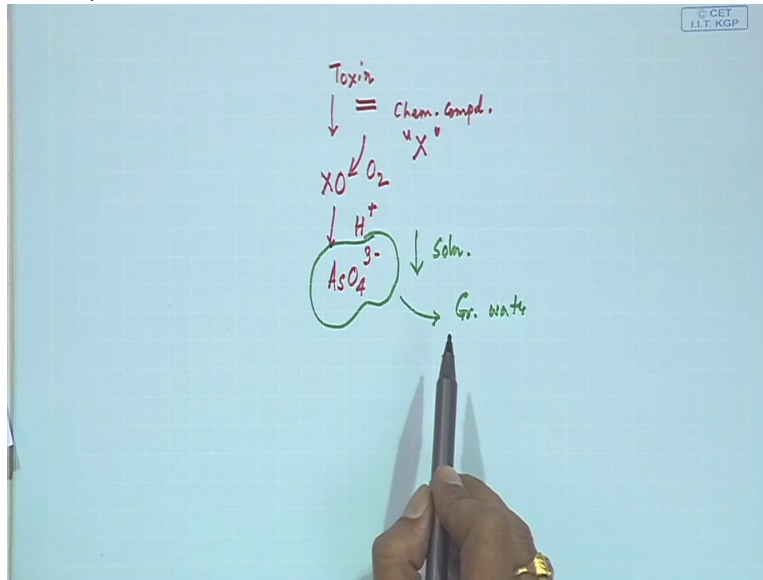 © CET
I.I.T. KGP
Toxin
Chem. Compd.
"X"
XO O₂
H⁺
AsO₄³⁻
Soln.
Gr. water